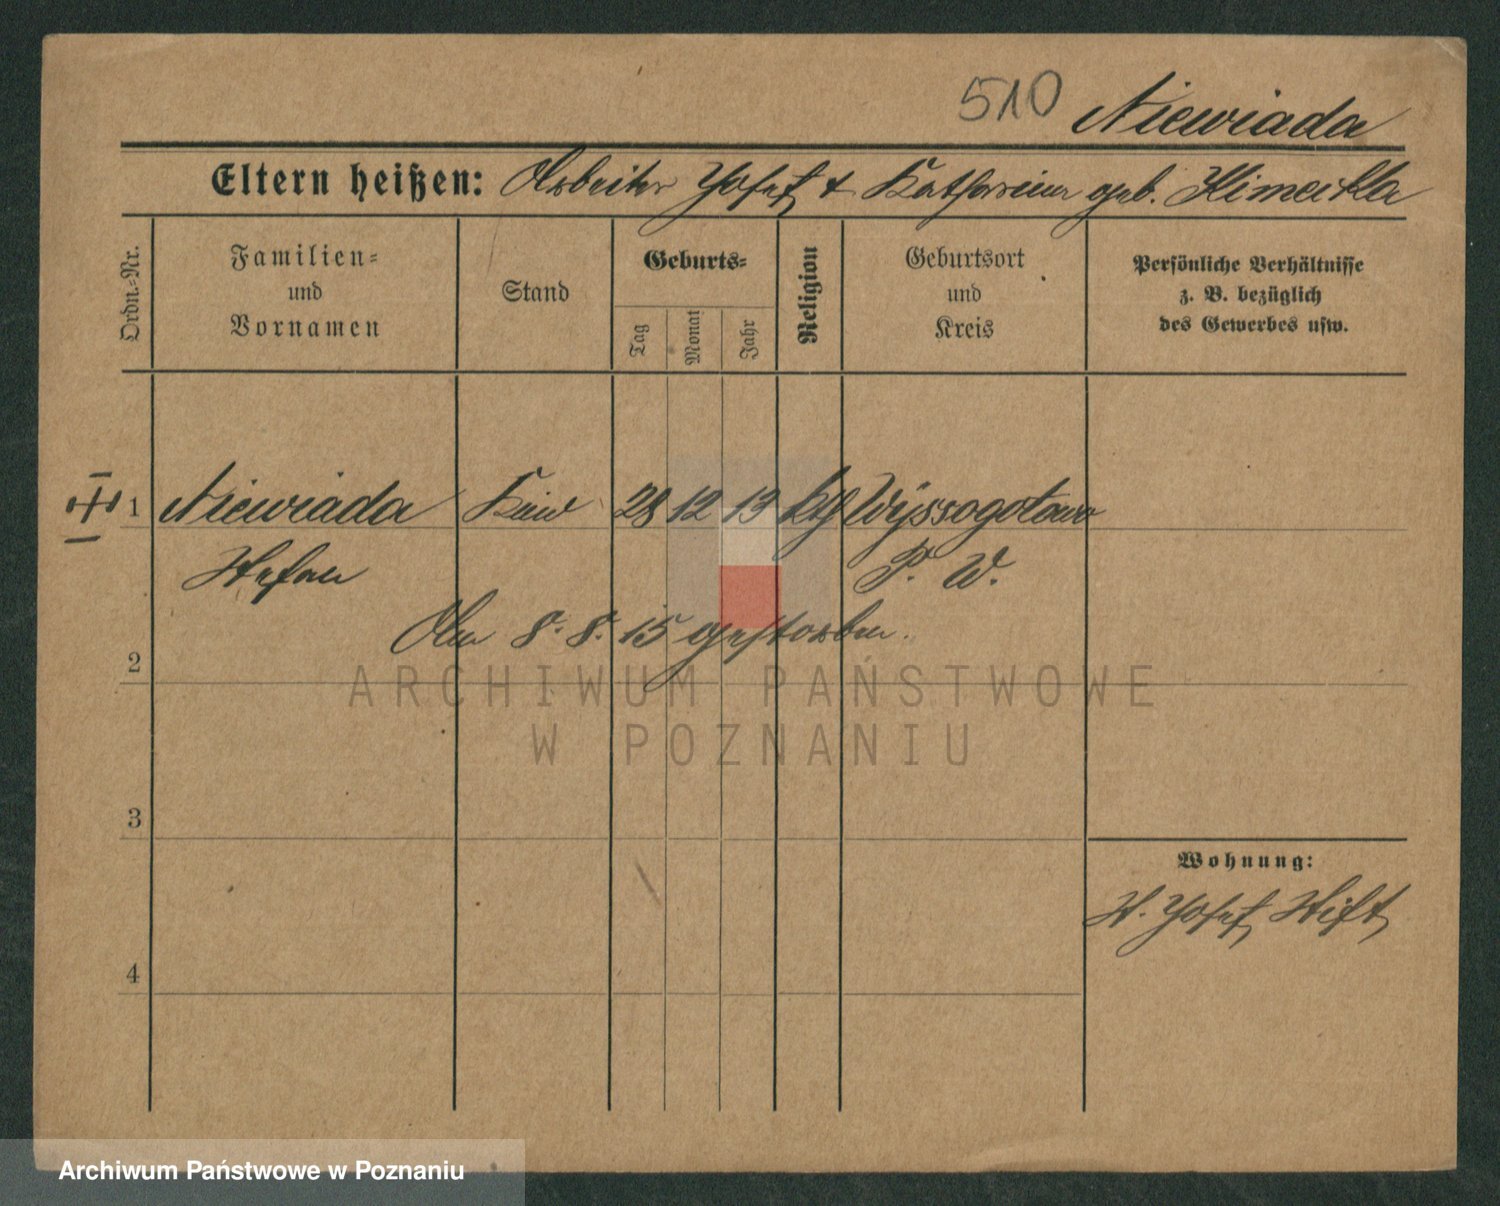 510 Niewiada
Eltern heißen: Arbeiter Josef & Katharina geb.
Ordn.-Nr.
Familien-
und
Vornamen
Stand
Geburts-
Tag
Monat
Jahr
Religion
Geburtsort
und
Kreis
Persönliche Verhältnisse
z. B. bezüglich
des Gewerbes usw.
1 Niewiada Kind 28 12 13 kth Wyssogotowo
Stefan P. W.
Am 8. 8. 15 gestorben.
2
ARCHIWUM PAŃSTWOWE
W POZNANIU
3
Wohnung:
St. Josef Stift
4
Archiwum Państwowe w Poznaniu